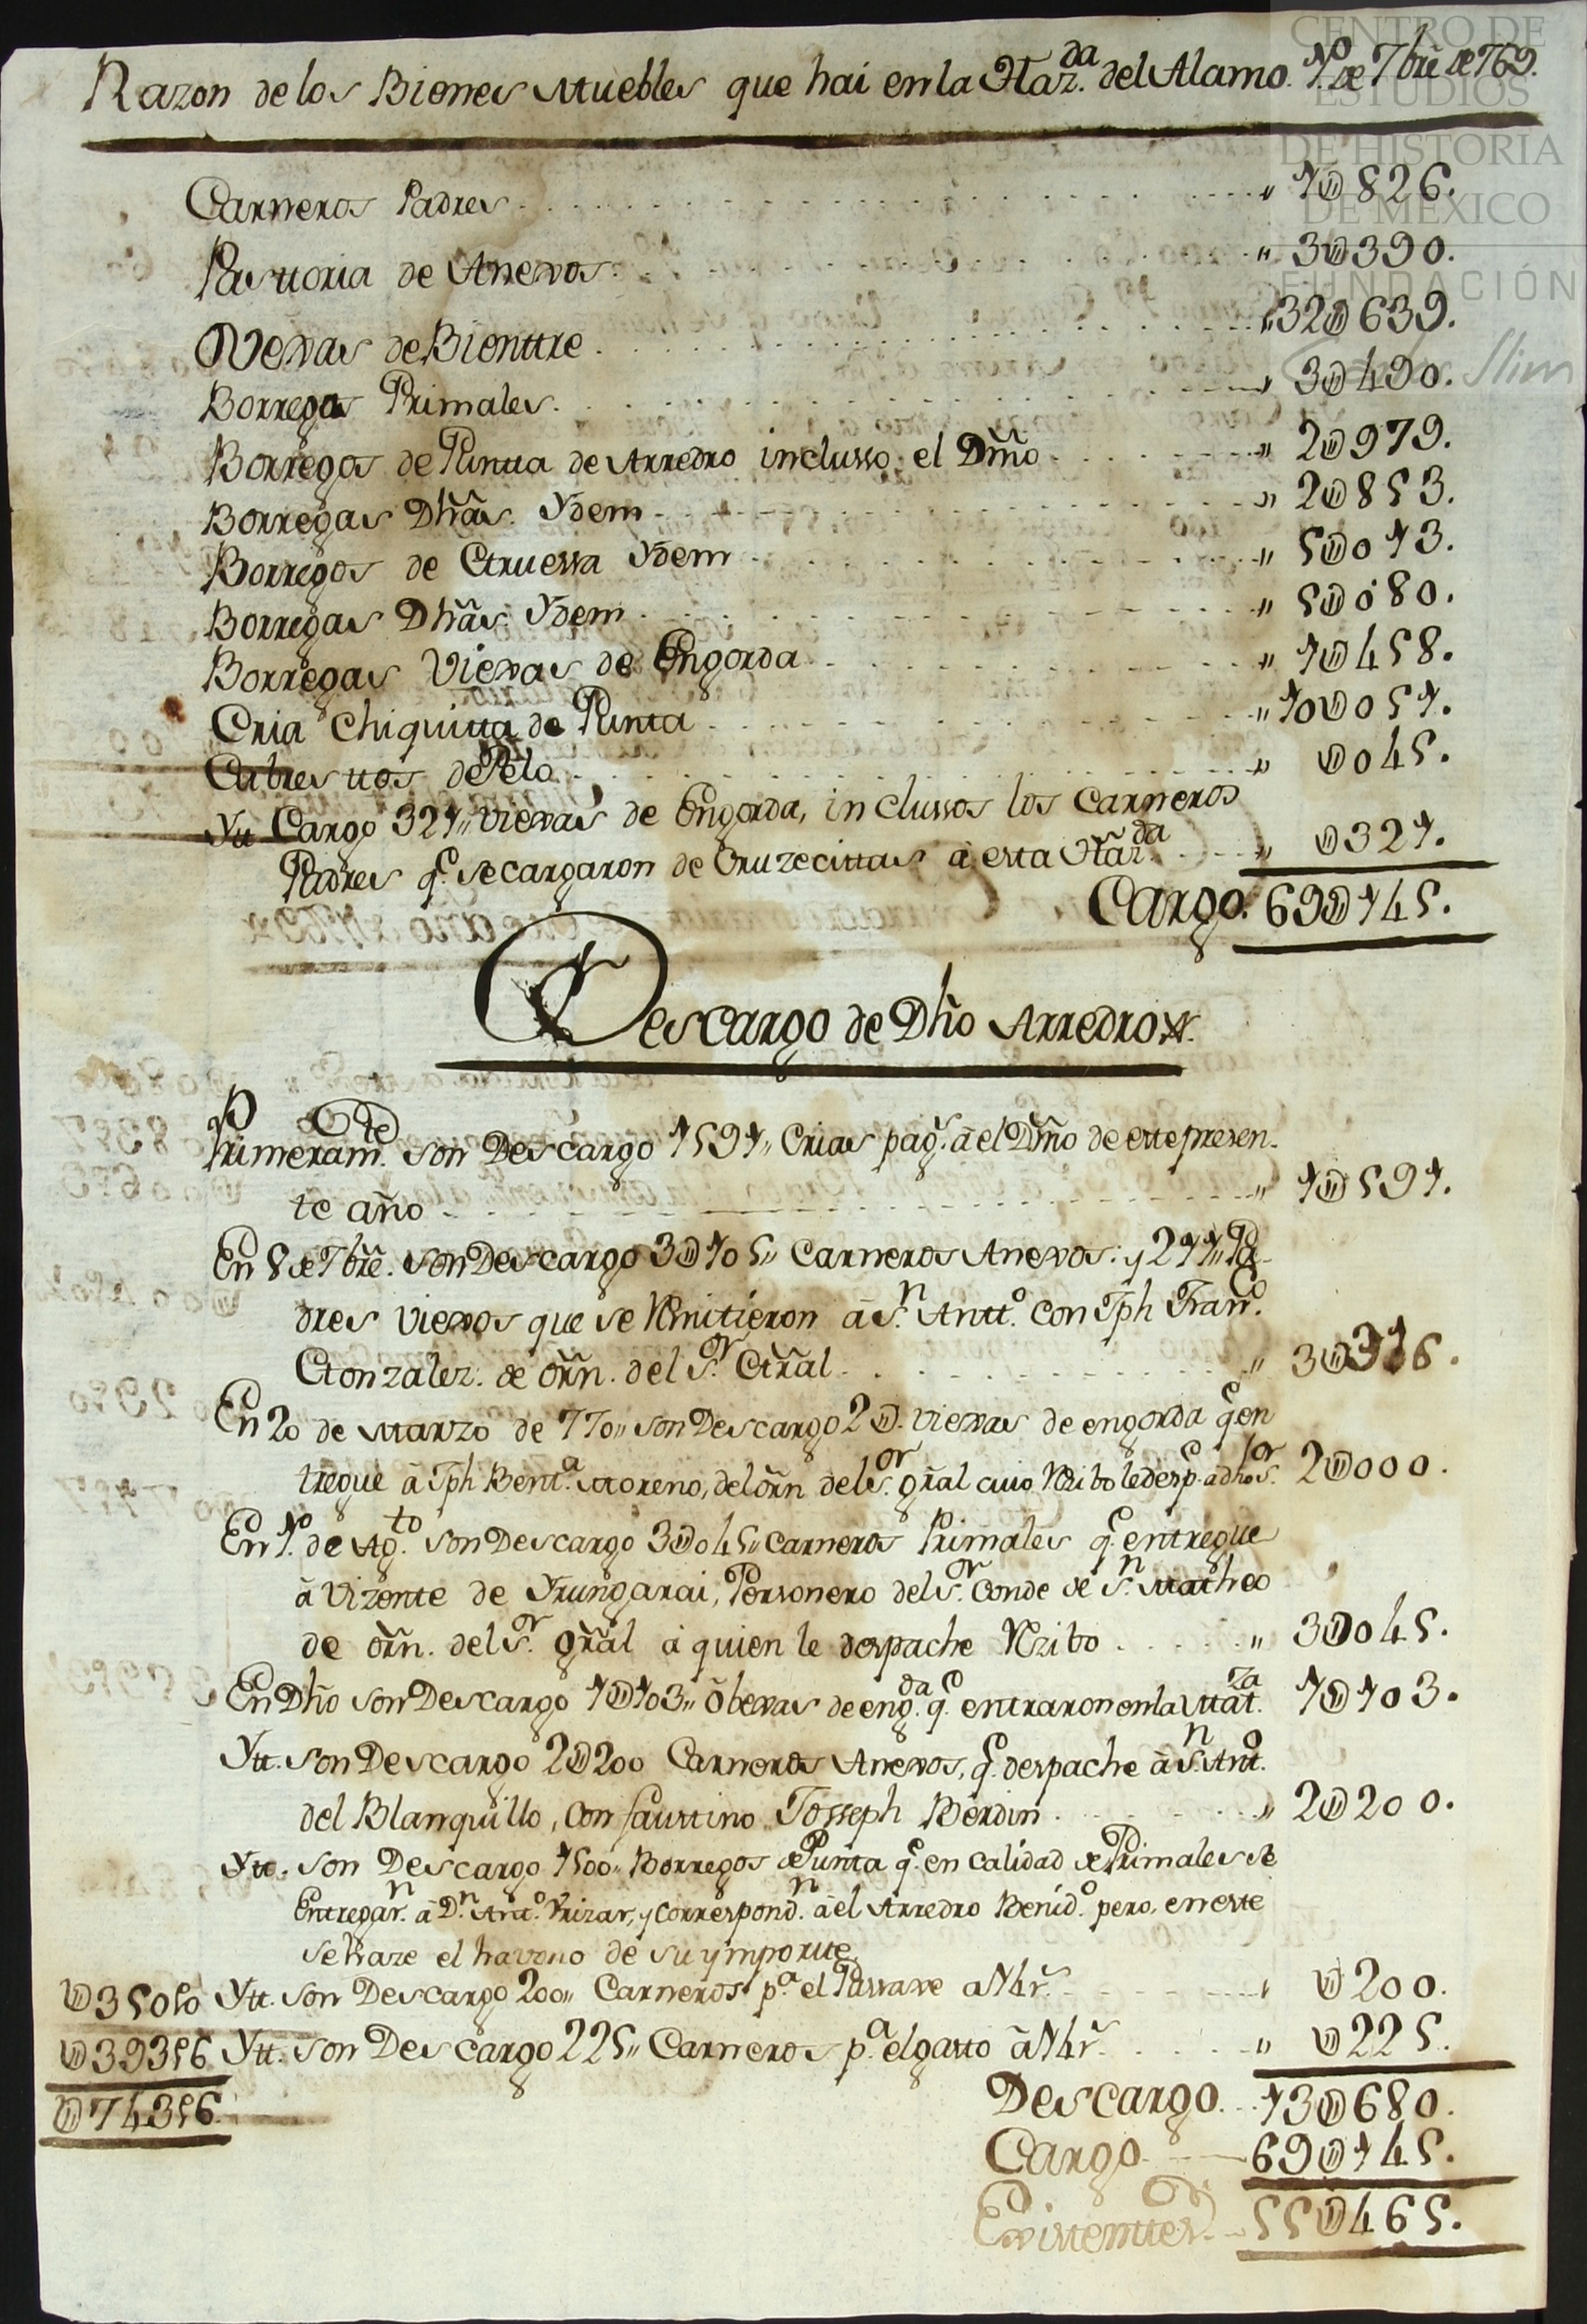 CENTRO DE
ESTUDIOS
DE HISTORIA
DE MÉXICO
FUNDACIÓN
Carlos Slim
Razon de los Bienes Muebles que hai en la Haz.da del Alamo. 1.o de 7bre de 769.
Carneros Padres " 1U826.
Pastoria de Anexos " 3U390.
Ovexas de Bienttre " 32U639.
Borregas Primales " 3U490.
Borregos de Puntta de Arredro inclusso el Dmo " 2U979.
Borregas Dhas. Ydem " 2U853.
Borregos de Gruessa Ydem " 5U013.
Borregas Dhas Ydem " 5U080.
Borregas Viexas de Engorda " 1U458.
Cria Chiquitta de Punta " 10U051.
Cabresttos de Pelo " U045.
Ytt Cargo 321" viexas de Engorda, inclussos los Carneros
Padres q.e se cargaron de Cruzecittas â esta Haz.da " U321.
Cargo. 69U145.
Descargo de Dho Arredro
Primeram.te son Descargo 1591" Crias pag.s â el Dmo de este presen-
te año " 1U591.
En 8 de 7bre. son Descargo 3U105" Carneros Anexos: y 211" Pa-
dres viexos que se Rmitieron â S.n Antt.o con Jph Fran.co
Gonzalez. de orn. del S.r Gral " 3U316.
En 20 de Marzo de 770" son Descargo 2U. viexas de engorda q.e en
tregue â Jph Bent.a Moreno, del orn del S.or gral cuio Rzibo le desp.e a dho S.or 2U000.
En 1.o de Ag.to son Descargo 3U045" Carneros Primales q.e entregue
â Vizente de Yrungarai, Personero del S.r Conde de S.n Matheo
de orn. del S.r gral â quien le despache Rzibo " 3U045.
En Dho son Descargo 1U103" obexas de eng.da q.e entraron en la Mat.za 1U103.
Ytt. son Descargo 2U200 Carneros Anexos, q.e despache â S.n Ant.o
del Blanquillo, con faustino Josseph Berdin " 2U200.
Ytt. son Descargo 1500" Borregos de Punta q.e en calidad de Primales se
Entregar.n â D.n Ant.o Vrizar, y correspond.n â el Arredro Benid.o pero, en este
se haze el havono de su ymportte.
U35010 Ytt. son Descargo 200" Carneros p.a el Passaxe " U200.
U39316 Ytt. son Descargo 225" Carneros p.a el gasto " U225.
U74316
Descargo. 13U680.
Cargo 69U145.
Existenttes 55U465.